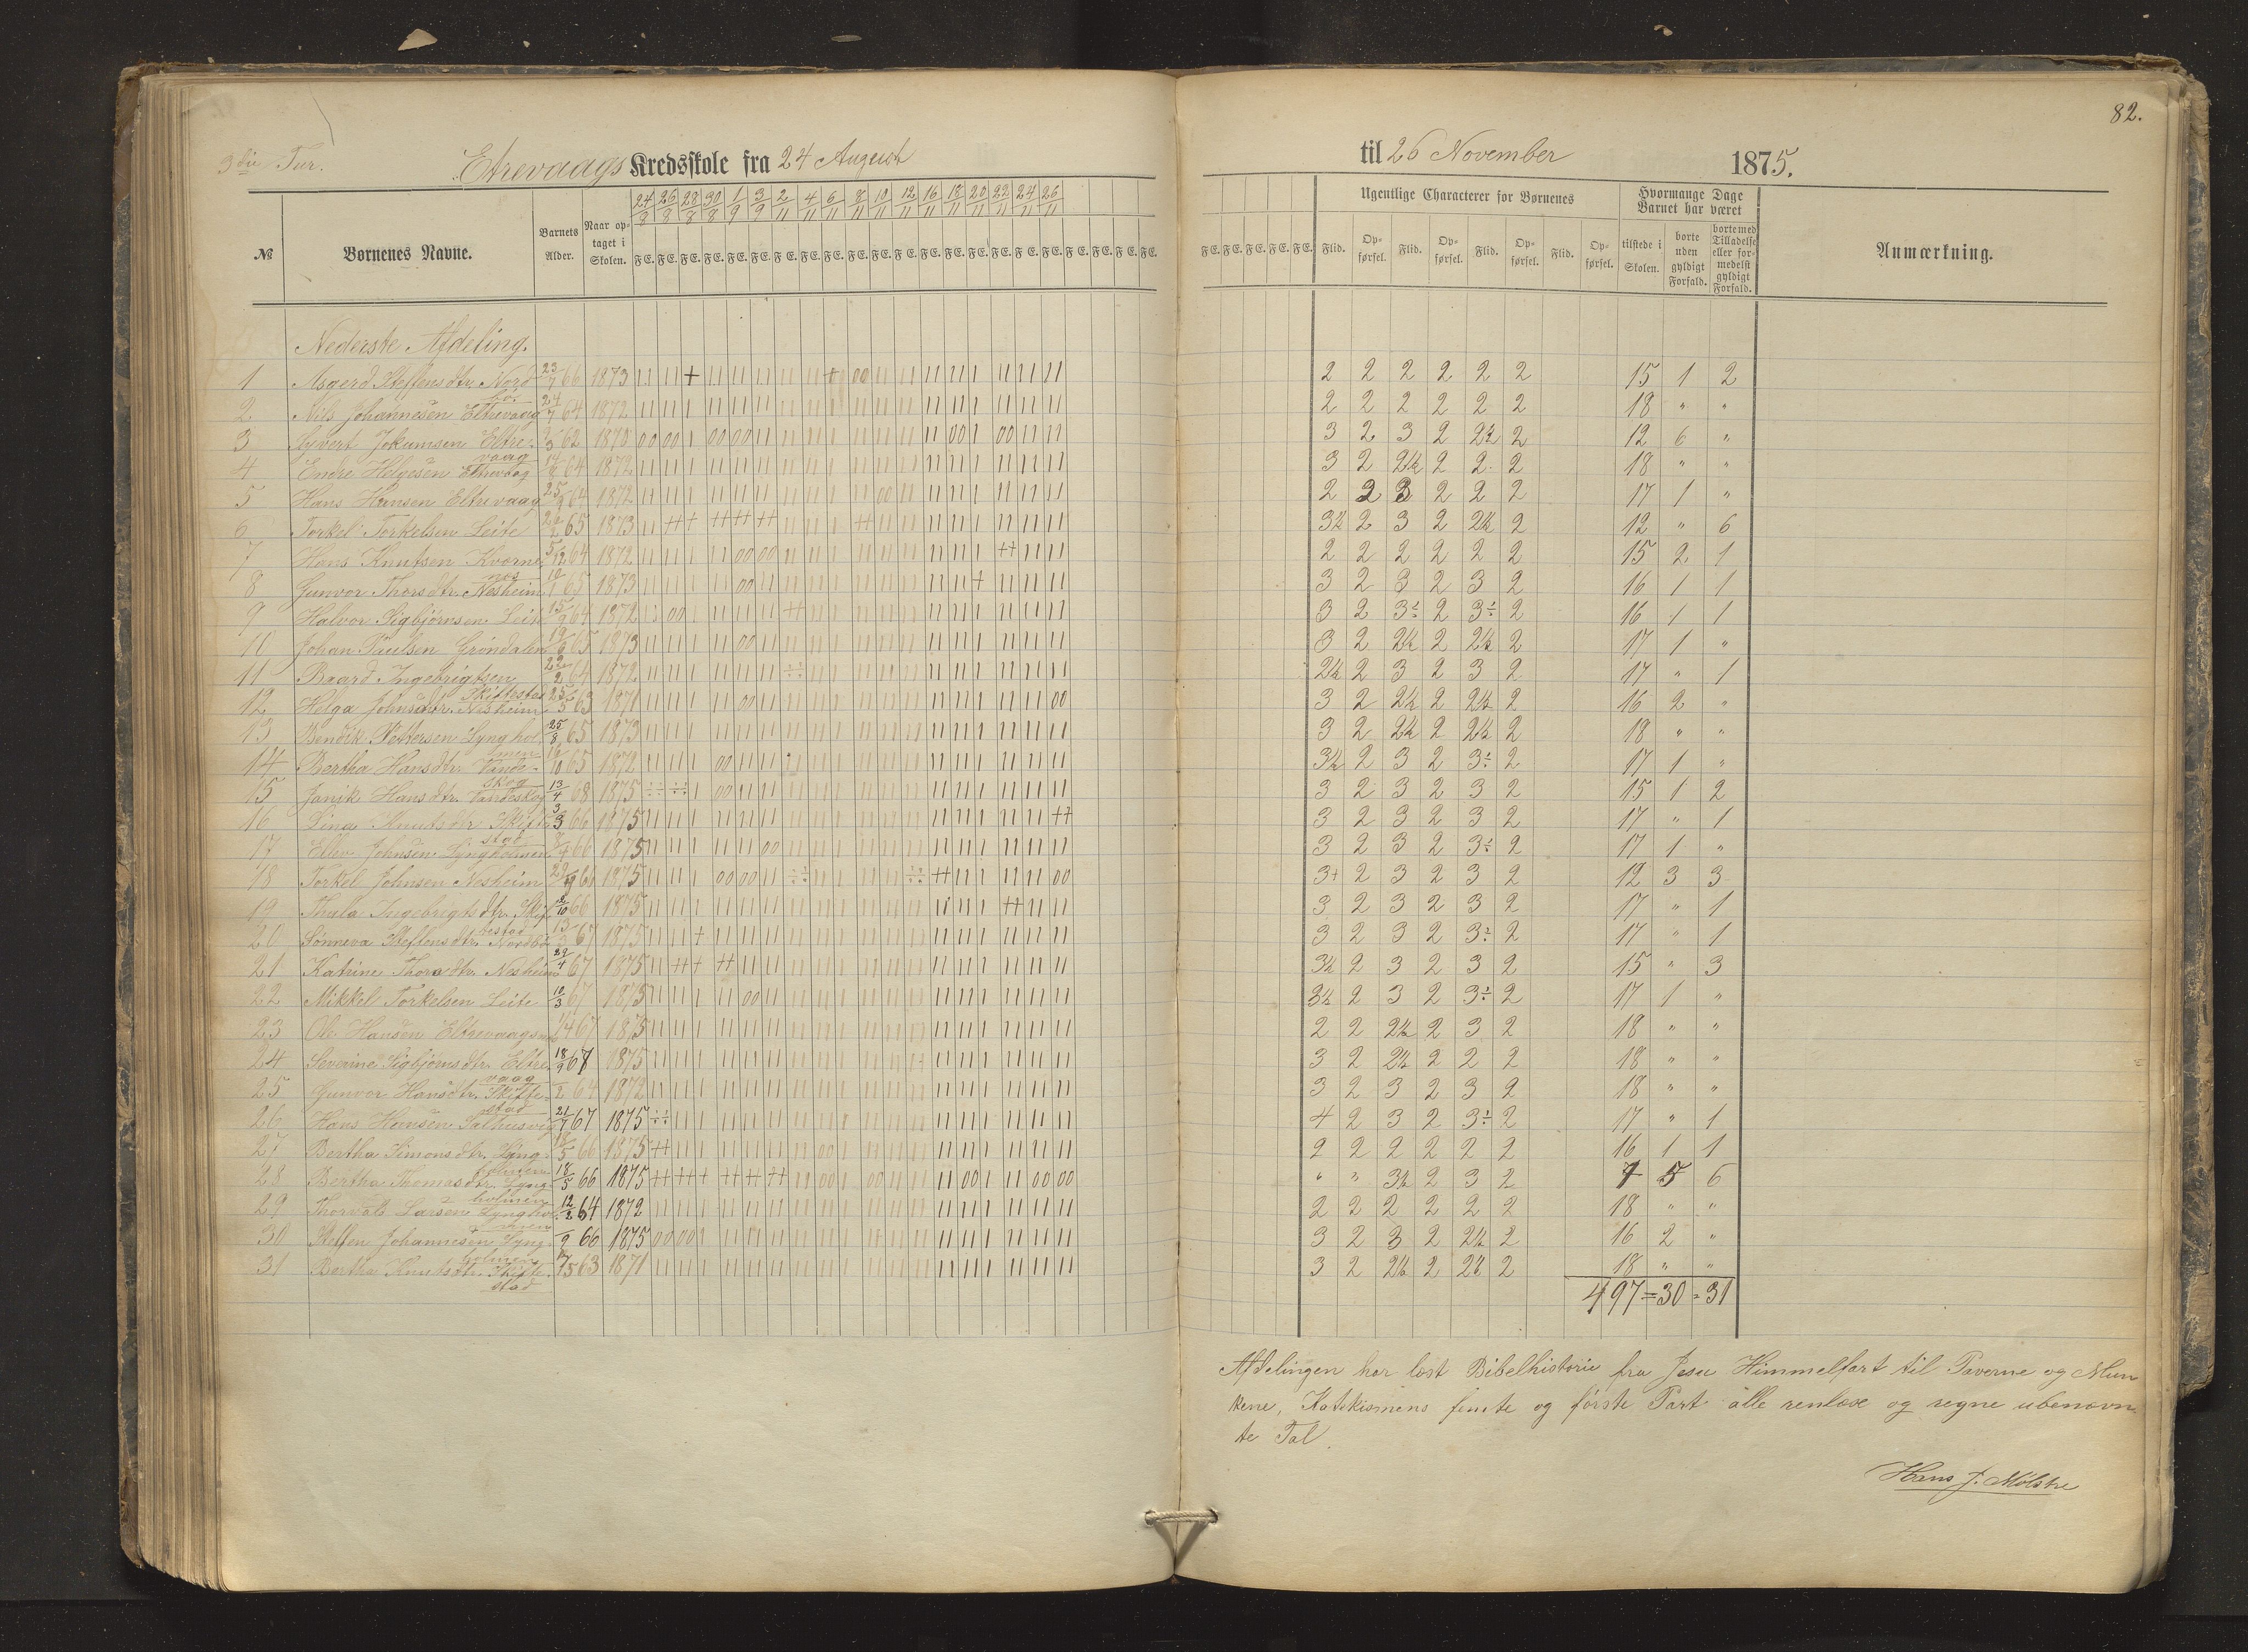 82.
3die Tur.
Etrevaags Kredsskole fra 24 August til 26 November 1875.
№ Børnenes Navne. Barnets Alder. Naar optaget i Skolen. 24/8 26/8 28/8 30/8 1/9 3/9 2/11 4/11 6/11 8/11 10/11 12/11 16/11 18/11 20/11 22/11 24/11 26/11
F E. F E. F E. F E. F E. F E. F E. F E. F E. F E. F E. F E. F E. F E. F E. F E. F E. F E. F E. F E. F E. F E.
F E. F E. F E. F E. F E.
Ugentlige Characterer for Børnenes
Flid. Opførsel. Flid. Opførsel. Flid. Opførsel. Flid. Opførsel.
Hvormange Dage Barnet har været
tilstede i Skolen. borte uden gyldigt Forfald. borte med Tilladelse eller formedelst gyldigt Forfald.
Anmærkning.
Nederste Afdeling.
1 Asgerd Steffensdtr. Nordbø 23/7 66 1873 2 2 2 2 2 2 15 1 2
2 Nils Johannesen Eltrevaag 24/7 64 1872 2 2 2 2 2 2 18 " "
3 Syvert Jokumsen Eltrevaag 62 1870 3 2 3 2 2½ 2 12 6 "
4 Endre Helgesen Eltrevaag 64 1872 3 2 2½ 2 2 2 18 " "
5 Hans Hansen Eltrevaag 64 1872 2 2 3 2 2 2 17 1 "
6 Torkel Torkelsen Leite 65 1873 3½ 2 3 2 2½ 2 12 " 6
7 Hans Knutsen Kvernenes 5/12 64 1872 2 2 2 2 2 2 15 2 1
8 Gunvor Thorsdtr. Nesheim 65 1873 3 2 3 2 3 2 16 1 1
9 Halvor Sigbjørnsen Leite 64 1872 3 2 3÷ 2 3÷ 2 16 1 1
10 Johan Paulsen Grøndalen 65 1873 3 2 2½ 2 2½ 2 17 1 "
11 Baard Ingebrigtsen Skiftestad 64 1872 2½ 2 3 2 3 2 17 " 1
12 Helga Johnsdtr. Nesheim 25/5 63 1871 3 2 2½ 2 2½ 2 16 2 "
13 Bendik Pettersen Lyngholmen 25/8 65 1873 3 2 2½ 2 2½ 2 18 " "
14 Bertha Hansdtr. Vandeskog 65 1872 3½ 2 3 2 3÷ 2 17 1 "
15 Janik Hansdtr. Vandeskog 13/4 68 1875 3 2 3 2 3 2 15 1 2
16 Lina Knutsdtr. Skiftestad 3/3 66 1875 3 2 3 2 3 2 17 " 1
17 Elev Johnsen Lyngholmen 66 1875 3 2 3 2 3÷ 2 17 1 "
18 Torkel Johnsen Nesheim 66 1875 3+ 2 3 2 3 2 12 3 3
19 Thala Ingebrigtsdtr. Skiftestad 66 1875 3 2 3 2 3 2 17 " 1
20 Sønneva Steffensdtr. Nordbø 67 1875 3 2 3 2 3÷ 2 17 " 1
21 Katrine Thorsdtr. Nesheim 67 1875 3½ 2 3 2 3 2 15 " 3
22 Mikkel Torkelsen Leite 10/3 67 1875 3½ 2 3 2 3÷ 2 17 1 "
23 Ole Hansen Eltrevaag 67 1875 2 2 2½ 2 3 2 18 " "
24 Severine Sigbjørnsdtr. Eltrevaag 18/9 67 1875 3 2 2½ 2 2 2 18 " "
25 Gunvor Hansdtr. Skiftestad 64 1872 3 2 3 2 3 2 18 " "
26 Hans Hansen Salhusvig 21/7 67 1875 4 2 3 2 3÷ 2 17 " 1
27 Bertha Simonsdtr. Lyngholmen 66 1875 2 2 2 2 2 2 16 1 1
28 Bertha Thomasdtr. Lyngholmen 18/5 66 1875 " " 3½ 2 3 2 7 5 6
29 Thorvald Larsen Lyngholmen 12/2 64 1872 2 2 2 2 2 2 18 " "
30 Steffen Johannesen Lyngholmen 66 1875 3 2 3 2 2½ 2 16 2 "
31 Bertha Knutsdtr. Skiftestad 63 1871 3 2 2½ 2 2½ 2 18 " "
497 = 30 = 31
Afdelingen har læst Bibelhistorie fra Jesu Himmelfart til Paverne og Mun
kene, Katekismens femte og første Part alle renlæse og regne ubenævn
te Tal.
Hans J. Mølstre